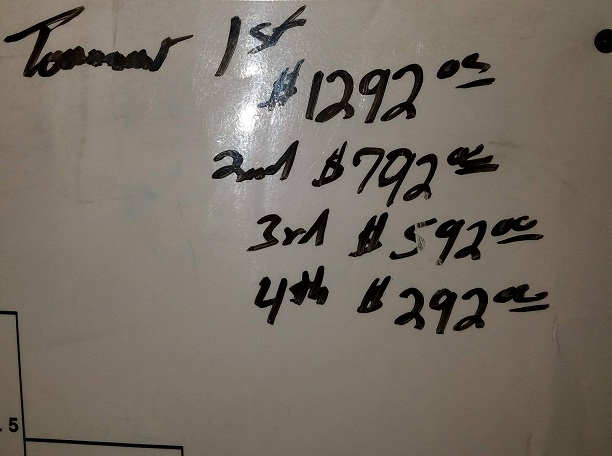 1st
$1292 00
2nd $792 00
3rd $592 00
4th $292 00
.5